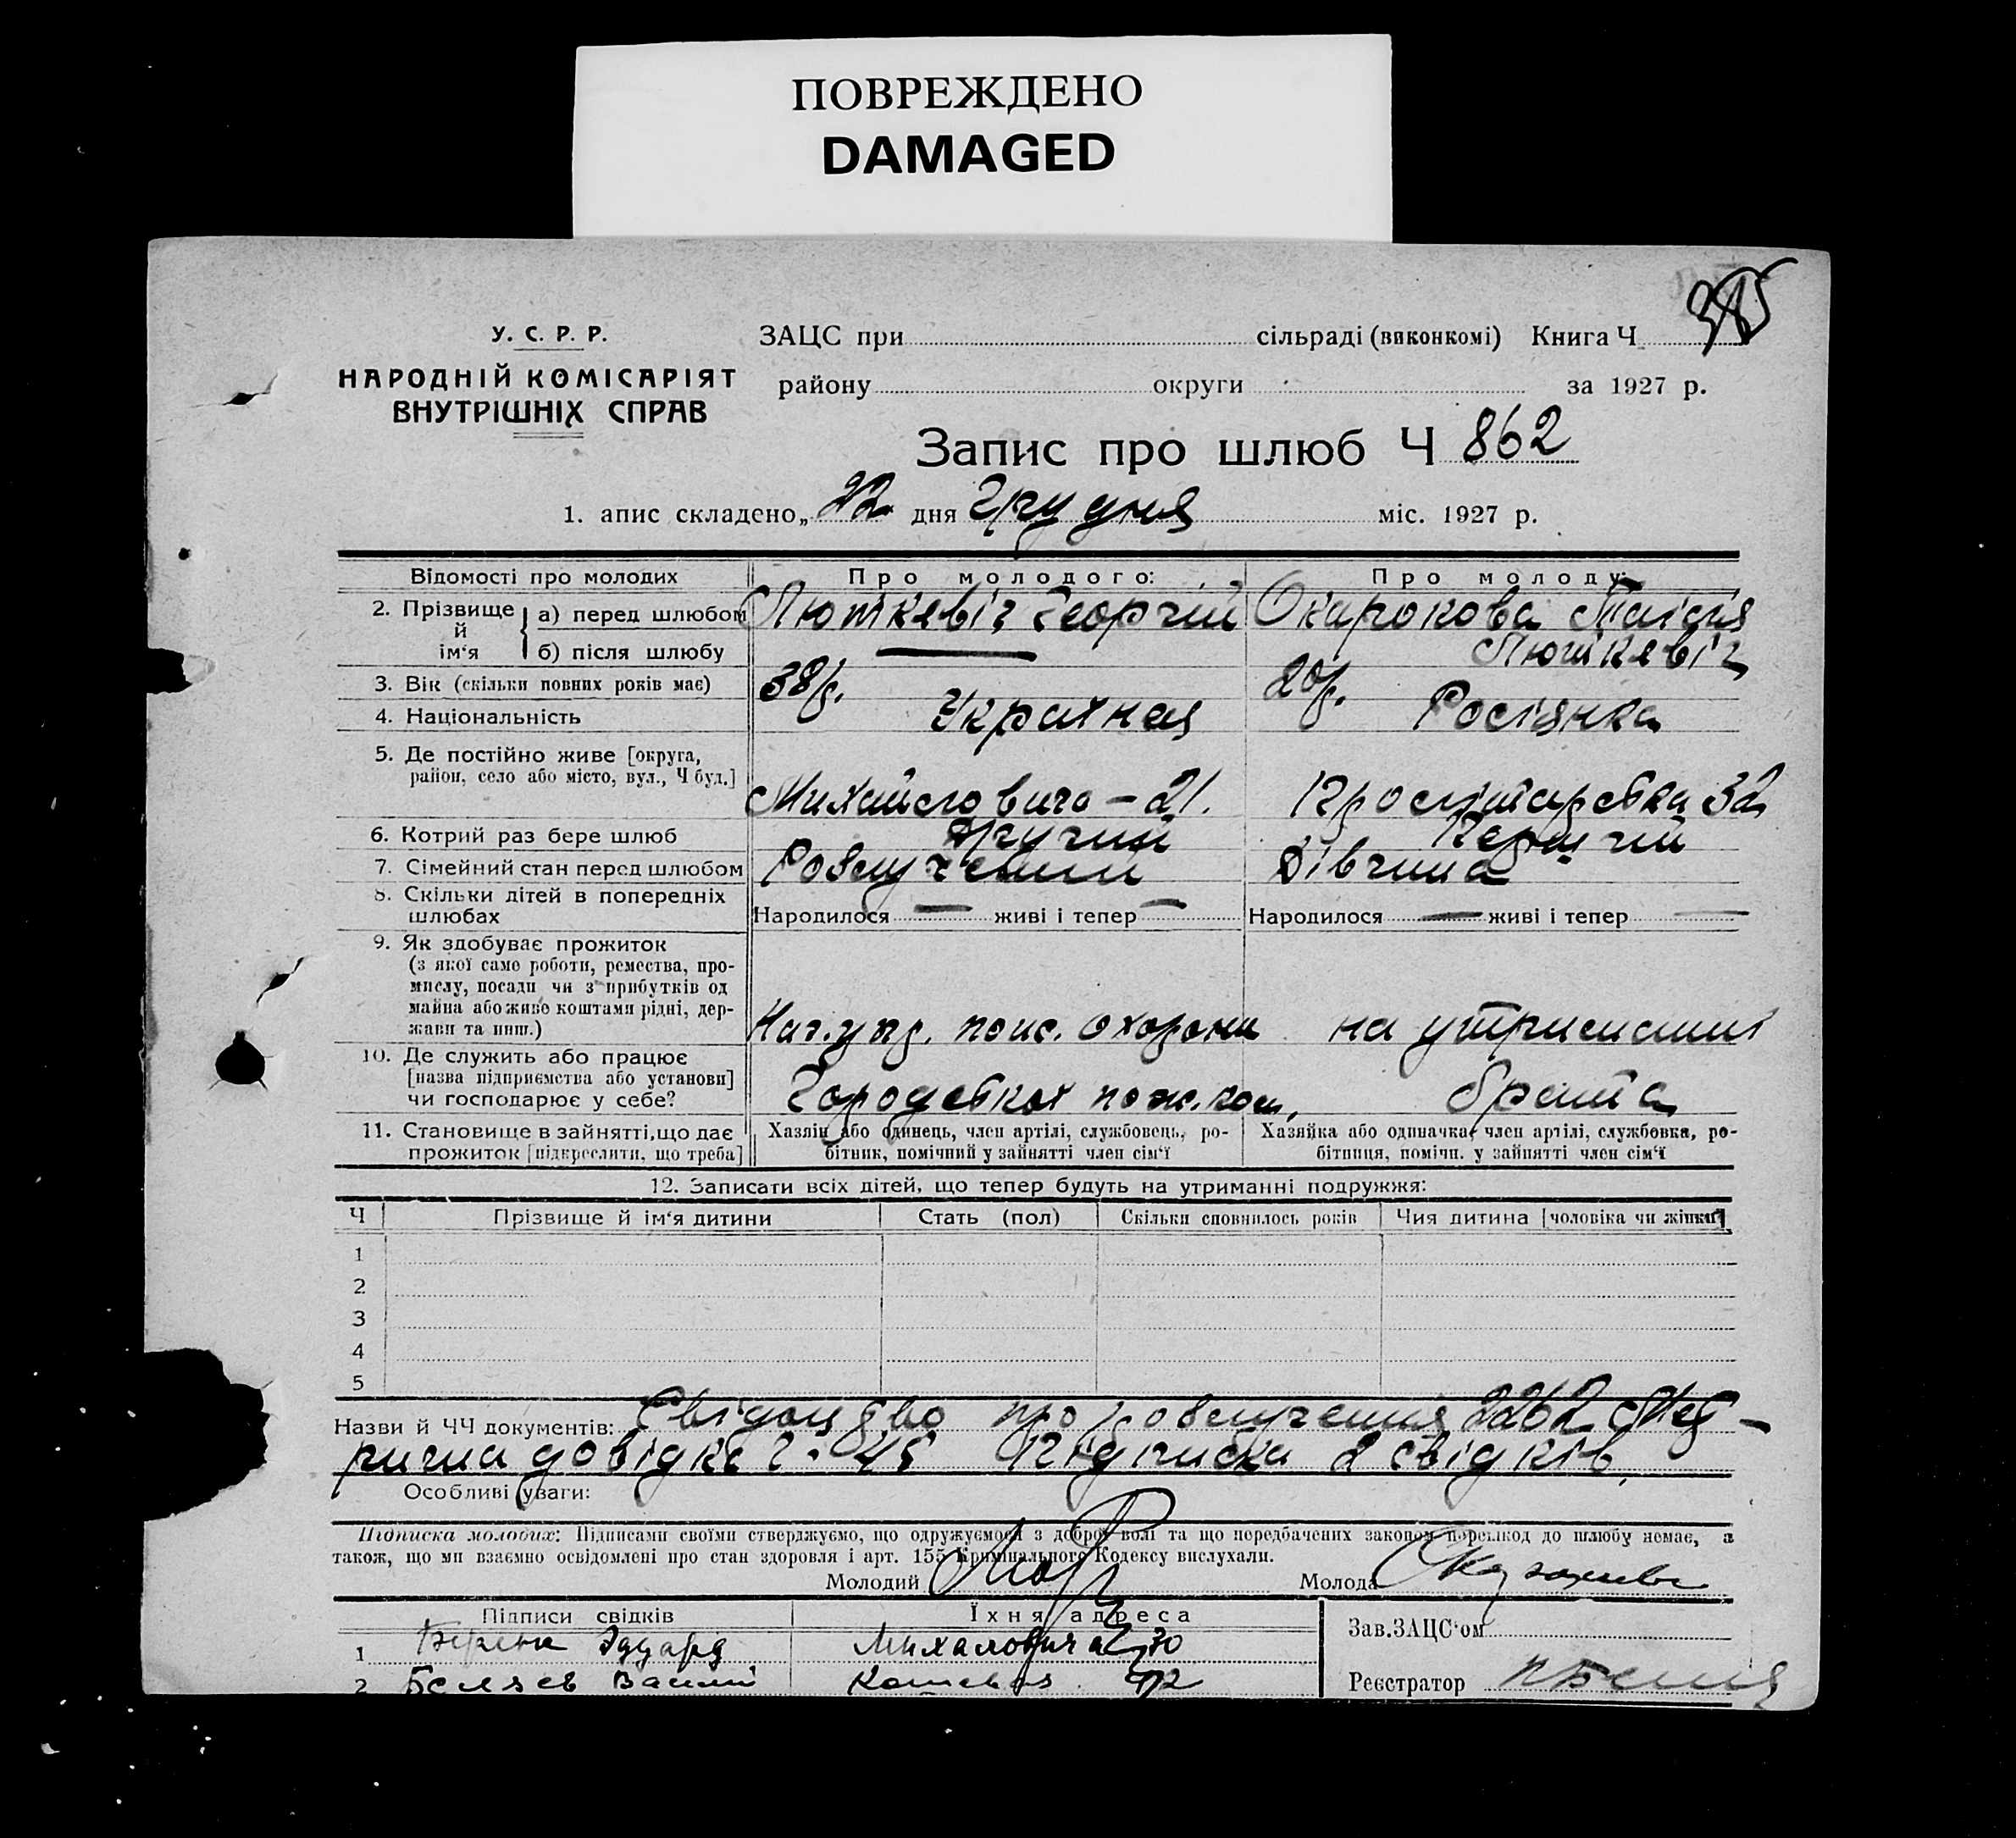 ПОВРЕЖДЕНО
DAMAGED
У. С. Р. Р.
НАРОДНІЙ КОМІСАРІЯТ
ВНУТРІШНІХ СПРАВ
ЗАЦС при сільраді (виконкомі) Книга Ч
району округи за 1927 р.
Запис про шлюб Ч 862
1. апис складено „ 22 дня Грудня міс. 1927 р.
Відомості про молодих Про молодого: Про молоду:
2. Прізвище й ім‘я
а) перед шлюбом Люткевіч Георгій Окарокова Таісія
б) після шлюбу Люткевіч
3. Вік (скільки повних років має) 38 р. 20 р.
4. Національність Росіянка
5. Де постійно живе [округа,
район, село або місто, вул., Ч буд.] — 21. Пролетарська 32
6. Котрий раз бере шлюб другий Перший
7. Сімейний стан перед шлюбом Розлучений Дівчина
8. Скільки дітей в попередніх
шлюбах Народилося — живі і тепер — Народилося — живі і тепер —
9. Як здобуває прожиток
(з якої само роботи, ремества, про-
мислу, посади чи з прибутків од
майна або живе коштами рідні, дер-
жави та инш.) охорони на утриманні
10. Де служить або працює
[назва підприємства або установи]
чи господарює у себе? Городської пож. ком. брата
11. Становище в зайнятті, що дає
прожиток [підкреслити, що треба]
Хазяїн або одинець, член артілі, службовець, ро-
бітник, помічний у зайнятті член сім‘ї
Хазяйка або одиначка, член артілі, службовка, ро-
бітниця, помічн. у зайнятті член сім‘ї
12. Записати всіх дітей, що тепер будуть на утриманні подружжя:
Ч Прізвище й ім‘я дитини Стать (пол) Скільки сповнилось років Чия дитина [чоловіка чи жінки]
1
2
3
4
5
Назви й ЧЧ документів: Свідоцтво про розлучення 2262 Мет-
рична довідка ч. 45 Підписка 2 свідків
Особливі уваги:
Підписка молодих: Підписами своїми стверджуємо, що одружуємося з доброї волі та що передбачених законом перешкод до шлюбу немає, а
також, що ми взаємно освідомлені про стан здоровля і арт. 155 Кримінального Кодексу вислухали.
Молодий Молода
Підписи свідків Їхня адреса Зав. ЗАЦС‘ом
1 Эдуард 70
2 Беляев Василий
Реєстратор